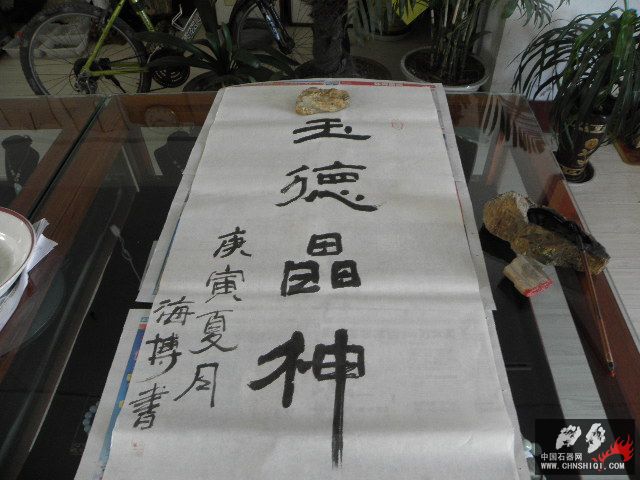 玉德晶神
庚寅夏月
海博書
中国石器网
WWW.CHNSHIQI.COM